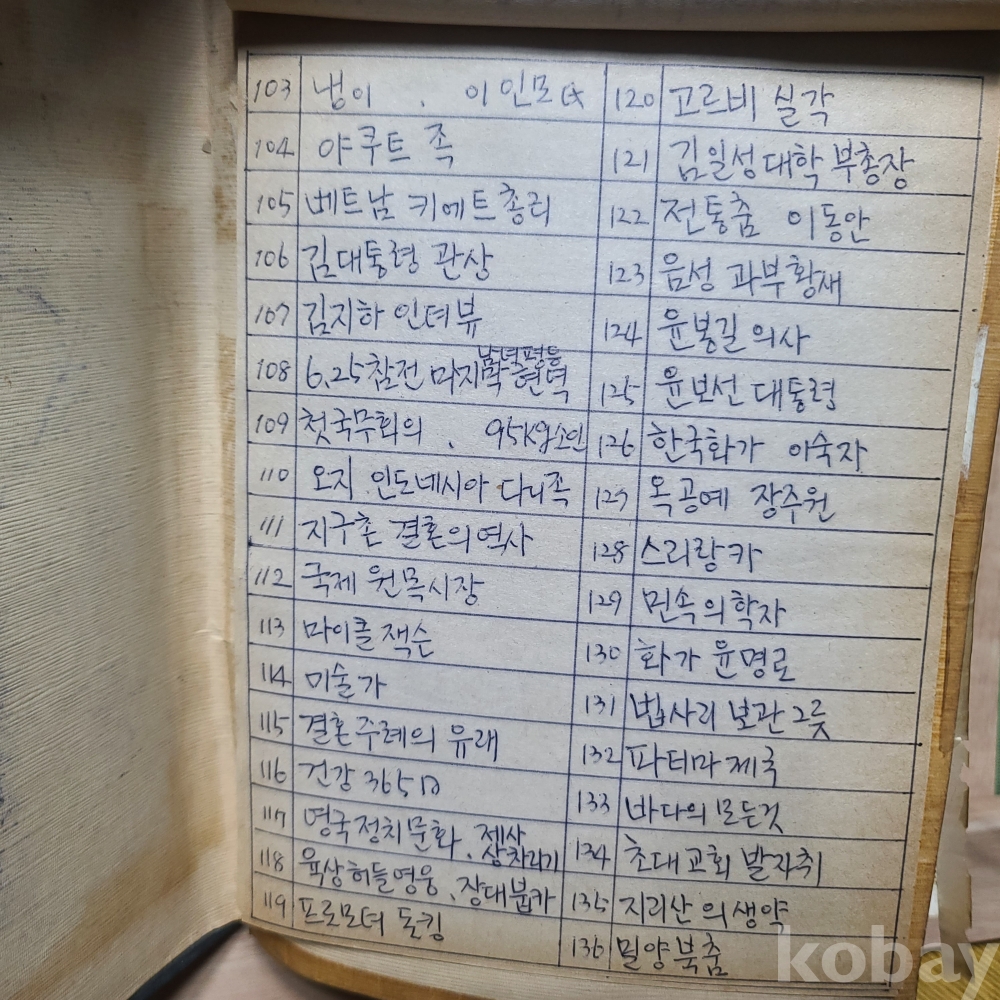 103 냉이 . 이인모氏
104 야쿠트 족
105 베트남 키에트총리
106 김대통령 관상
107 김지하 인터뷰
108 6.25참전 마지막 현역 남녀평등
109 첫국무회의 . 95kg
110 오지 인도네시아 다니족
111 지구촌 결혼의역사
112 국제 원목시장
113 마이클 잭슨
114 미술가
115 결혼주례의 유래
116 건강 365日
117 영국정치문화 . 제사상차리기
118 육상허들영웅 . 장대붑카
119 프로모터 돈킹
120 고르비 실각
121 김일성대학 부총장
122 전통춤 이동안
123 음성 과부황새
124 윤봉길의사
125 윤보선 대통령
126 한국화가 이숙자
127 옥공예 장주원
128 스리랑카
129 민속의학자
130 화가 윤명로
131 법사리 보관그릇
132 파티마제국
133 바다의모든것
134 초대교회 발자취
135 지리산의생약
136 밀양북춤
kobay